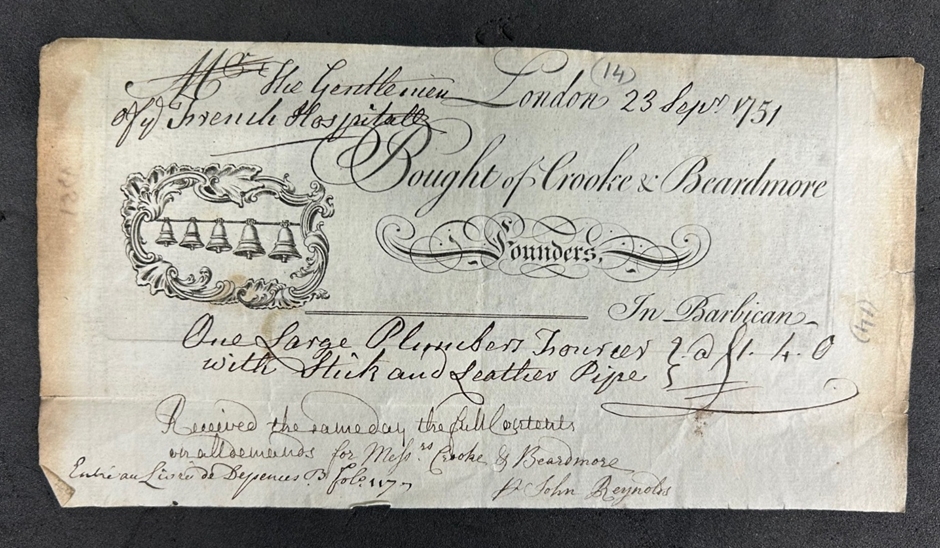 (14)
The Gentlemen London 23 Sepr. 1751
Of ye French Hospitall
Bought of Crooke & Beardmore
Founders,
In Barbican
One Large Plumbers a £1.. 4. 0
with Stick and Leather Pipe
Received the same day the full Contents
& all demands for Messrs Crooke & Beardmore
Entré au Livre de Depences B fol. 117
Pr John Reynolds
(14)
1751